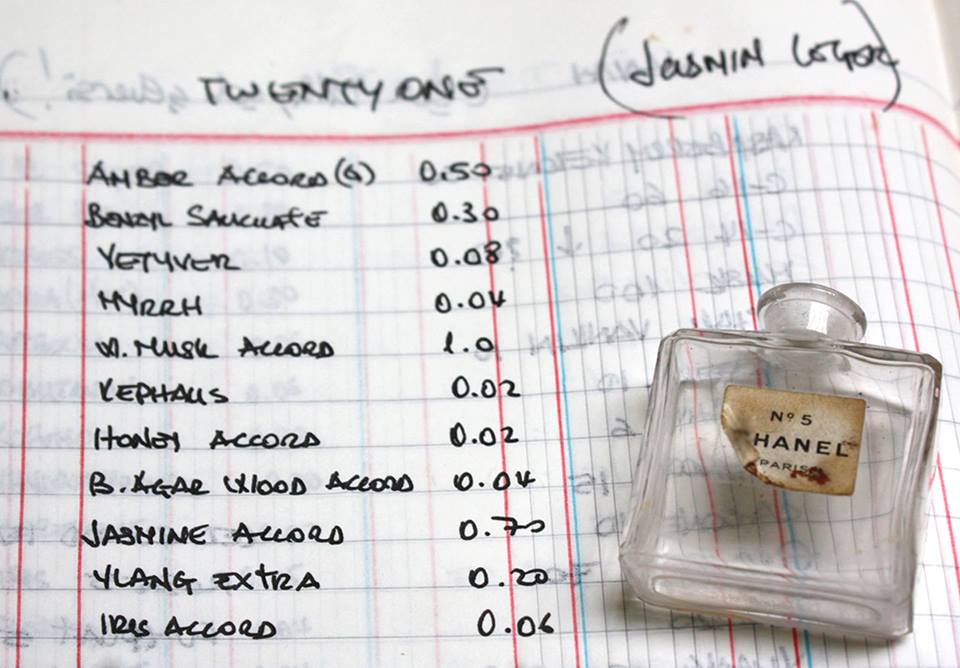 TWENTY ONE (JASMIN LEGER)
AMBER ACCORD (G) 0.50
BENZYL SALICILATE 0.30
VETYVER 0.08
MYRRH 0.04
W. MUSK ACCORD 1.0
KEPHALIS 0.02
HONEY ACCORD 0.02
B. AGAR WOOD ACCORD 0.04
JASMINE ACCORD 0.70
YLANG EXTRA 0.20
IRIS ACCORD 0.06
Nº 5
HANEL
PARIS